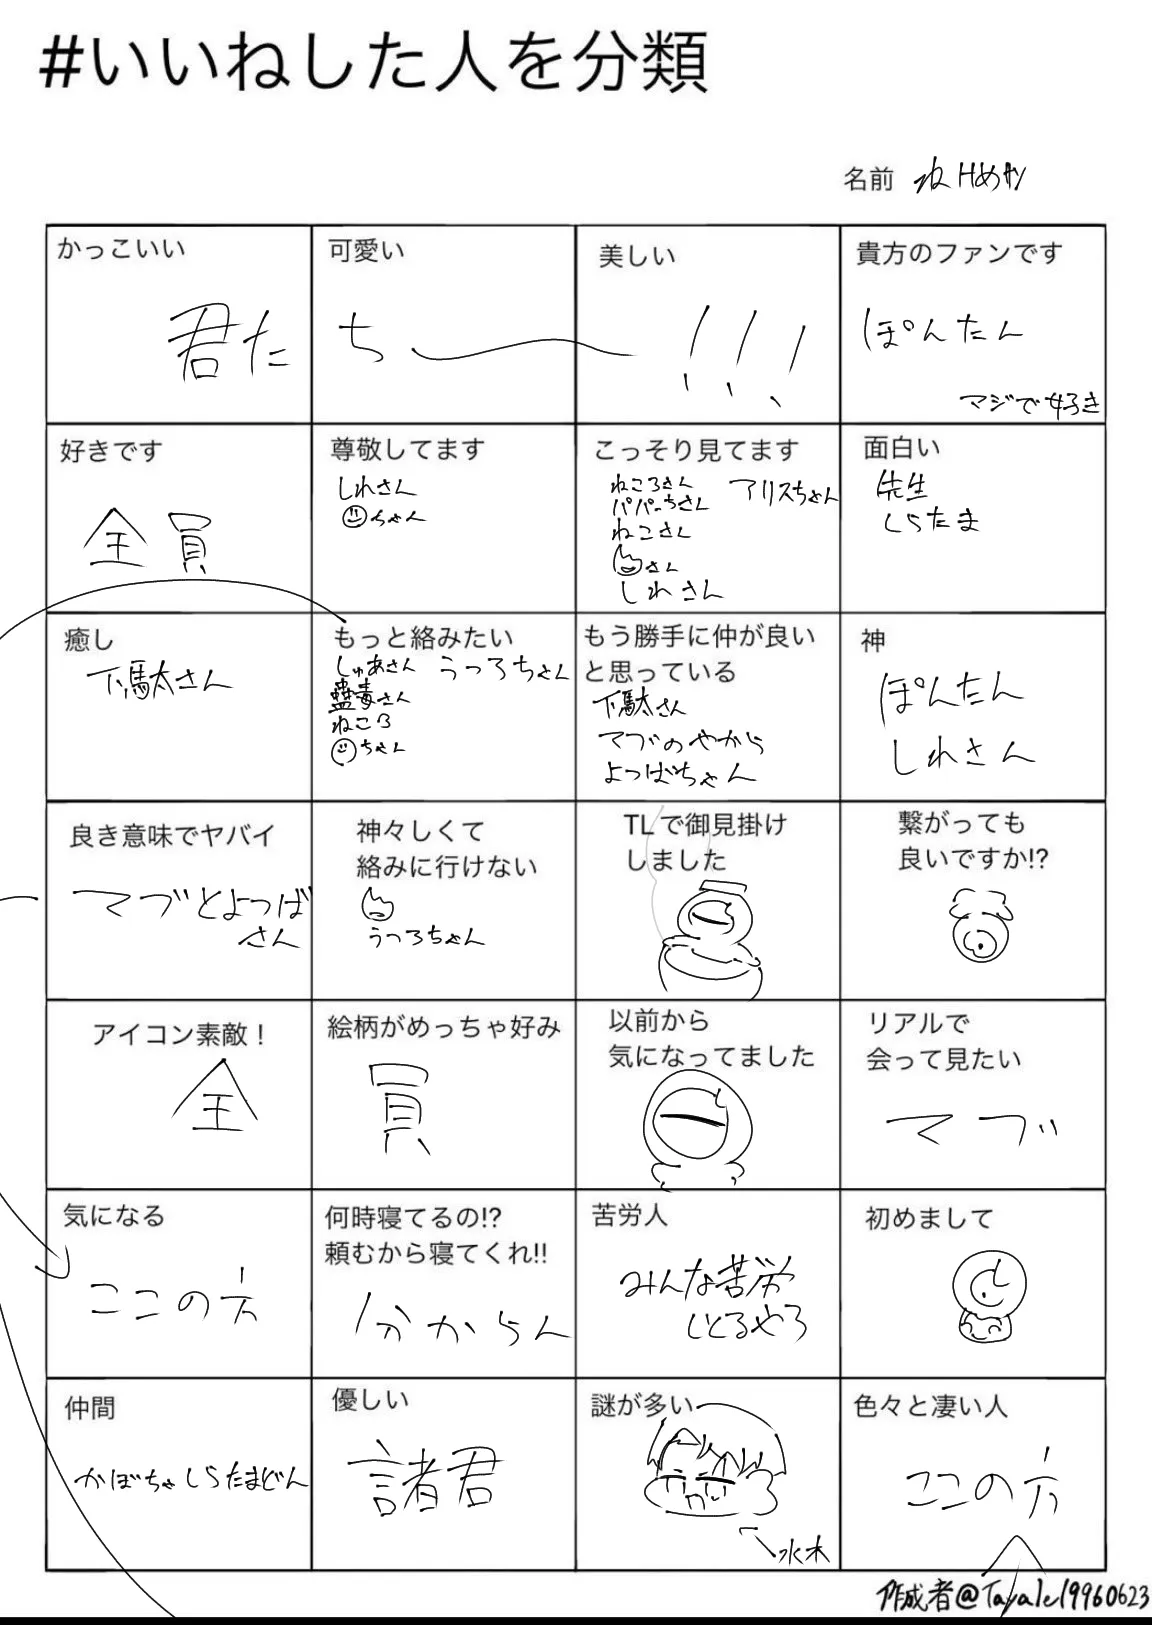 #いいねした人を分類
名前
かっこいい
可愛い
美しい
君たち〜!!!
貴方のファンです
ぽんたん
マジで好き
好きです
全員
尊敬してます
しれさん
ちゃん
こっそり見てます
ねころさん
アリスちゃん
パパっちさん
ねこさん
さん
しれさん
面白い
先生
しらたま
癒し
下駄太さん
もっと絡みたい
しゅあさん
うつろちゃん
蠱毒さん
ねころ
ちゃん
もう勝手に仲が良い
と思っている
下駄太さん
マブのやから
よつばちゃん
神
ぽんたん
しれさん
良き意味でヤバイ
マブとよつば
さん
神々しくて
絡みに行けない
うつろちゃん
TLで御見掛け
しました
繋がっても
良いですか!?
アイコン素敵！
絵柄がめっちゃ好み
全員
以前から
気になってました
リアルで
会って見たい
マブ
気になる
ここの方
何時寝てるの!?
頼むから寝てくれ!!
分からん
苦労人
みんな苦労
しとるやろ
初めまして
仲間
かぼちゃしらたまどん
優しい
諸君
謎が多い
水木
色々と凄い人
ここの方
作成者@Tayale19960623